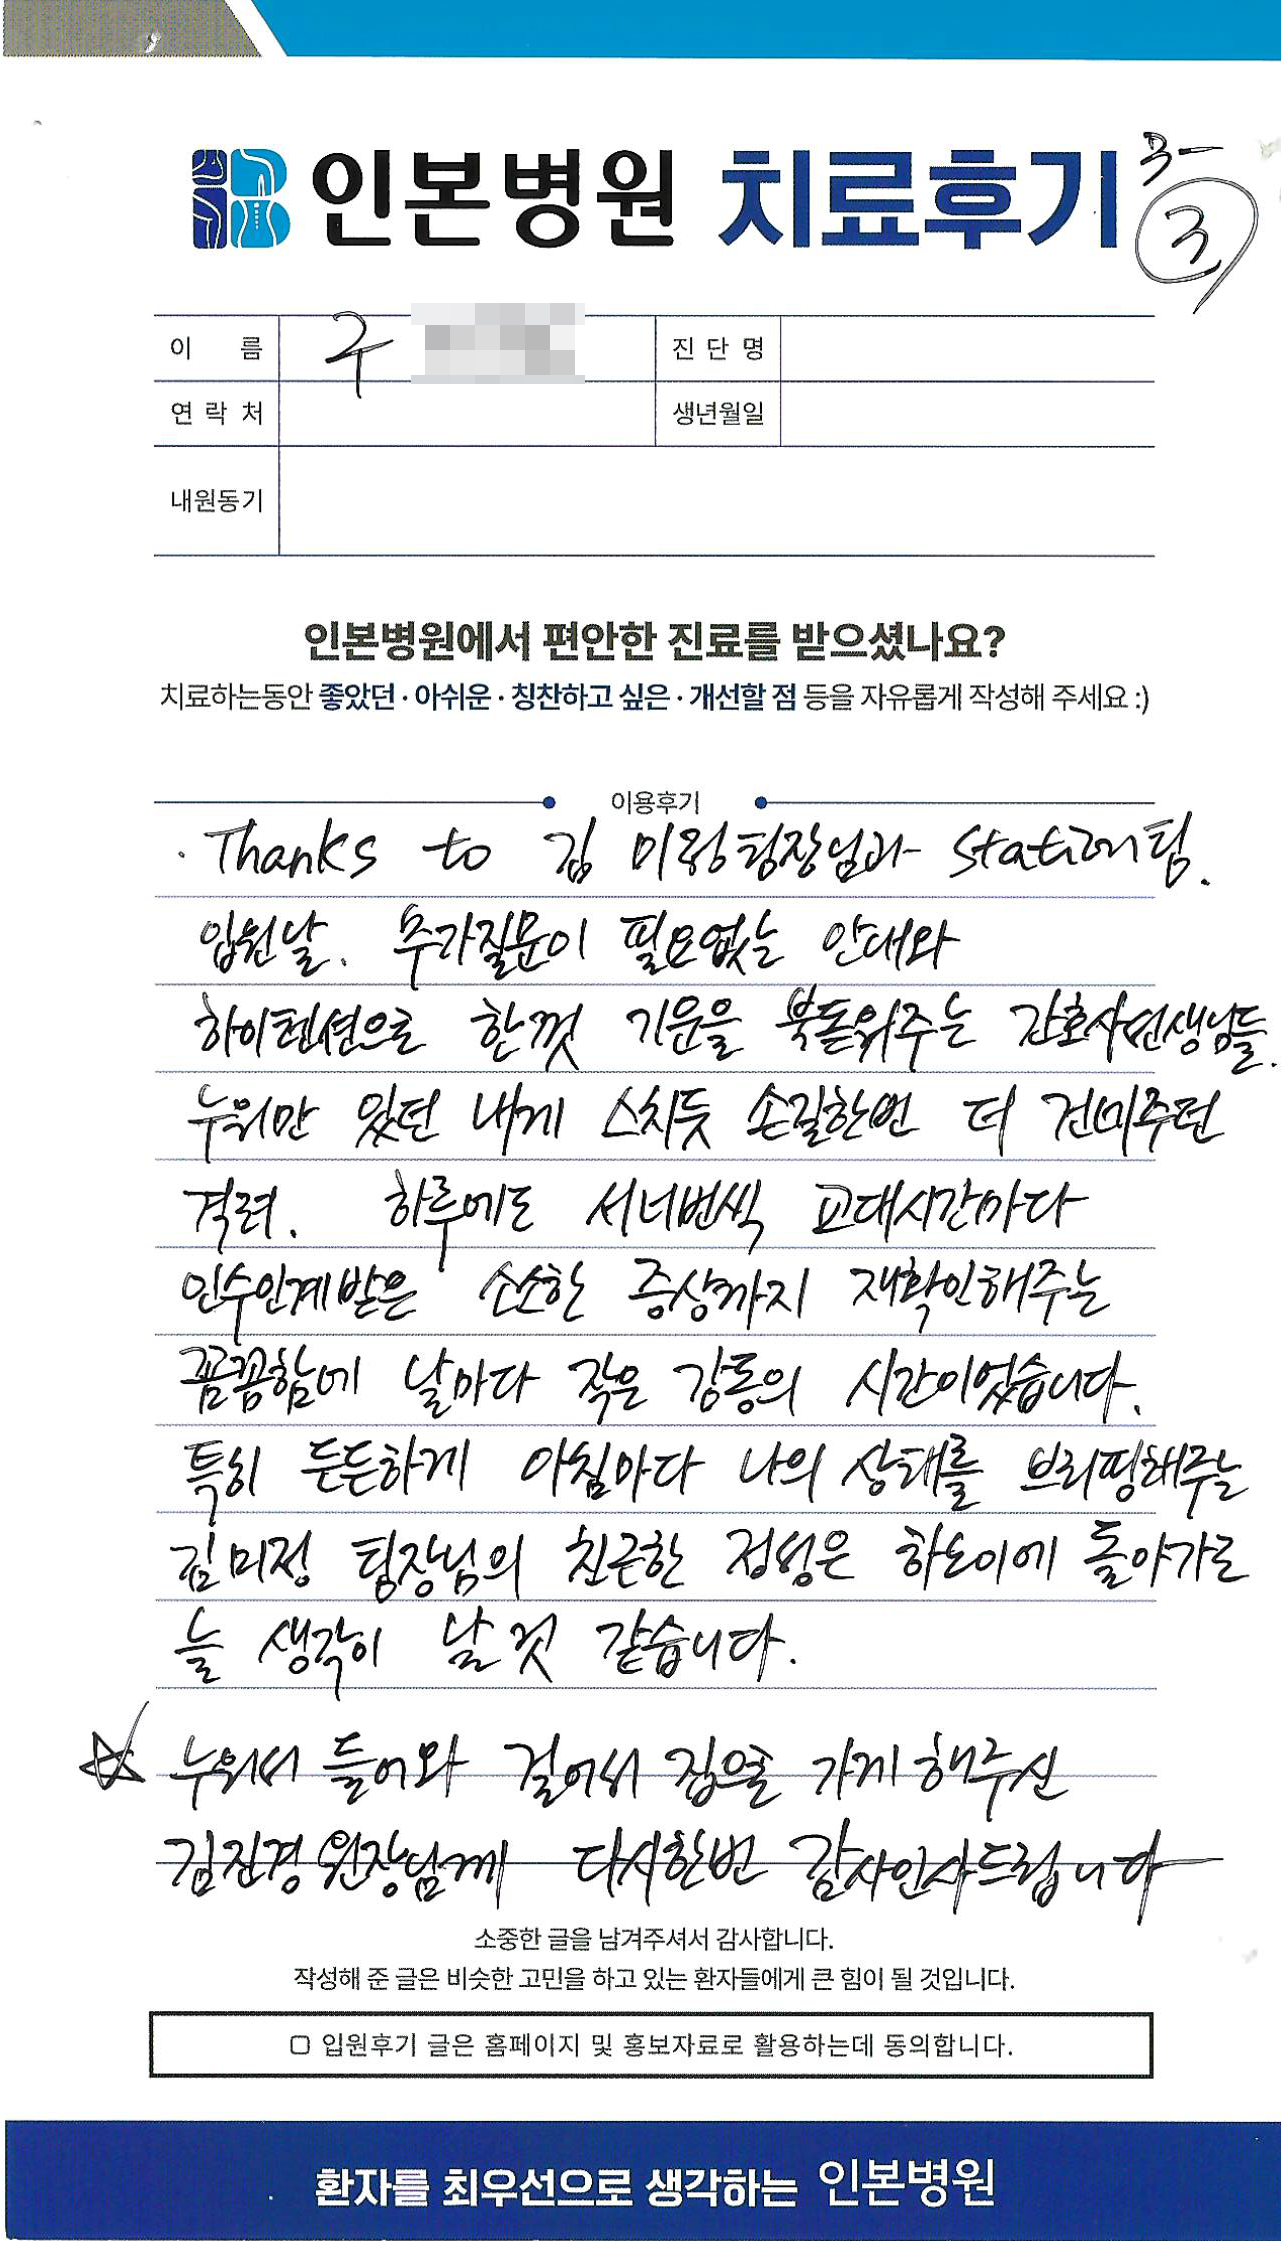 인본병원 치료후기
3-
③
이 름 구
진 단 명
연 락 처
생년월일
내원동기
인본병원에서 편안한 진료를 받으셨나요?
치료하는동안 좋았던 · 아쉬운 · 칭찬하고 싶은 · 개선할 점 등을 자유롭게 작성해 주세요 :)
이용후기
· Thanks to 김 팀장님과 station팀.
입원날. 추가질문이 필요없는 안내와
하이텐션으로 한껏 기운을 북돋워주는 간호사선생님들.
누워만 있던 내게 스치듯 손길한번 더 건네주던
격려. 하루에도 서너번씩 교대시간마다
인수인계받은 소소한 증상까지 재확인해주는
꼼꼼함에 날마다 작은 감동의 시간이었습니다.
특히 든든하게 아침마다 나의 상태를 브리핑해주는
김미정 팀장님의 친근한 정성은 하노이에 돌아가도
늘 생각이 날 것 같습니다.
☆ 누워서 들어와 걸어서 집으로 가게 해주신
김진경 원장님께 다시한번 감사인사드립니다
소중한 글을 남겨주셔서 감사합니다.
작성해 준 글은 비슷한 고민을 하고 있는 환자들에게 큰 힘이 될 것입니다.
▢ 입원후기 글은 홈페이지 및 홍보자료로 활용하는데 동의합니다.
환자를 최우선으로 생각하는 인본병원